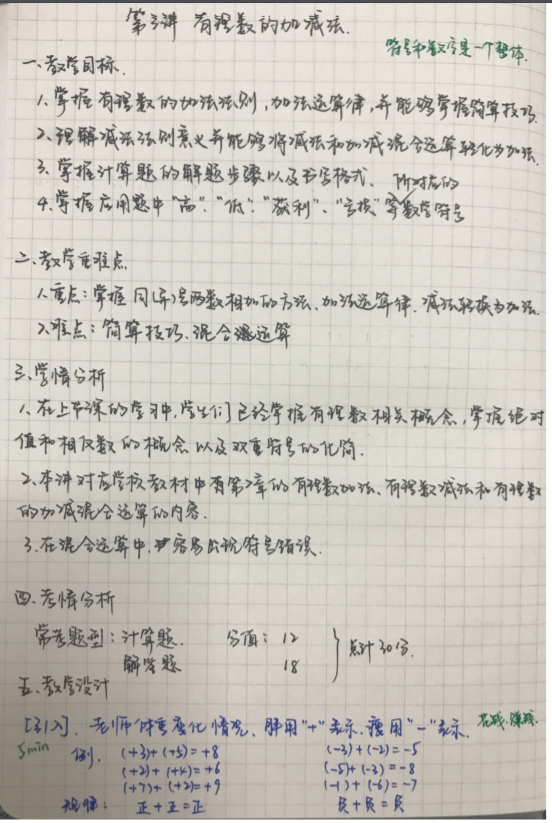 第3讲 有理数的加减法.
符号和数字是一个整体.
一、教学目标.
1.掌握有理数的加法法则,加法运算律,并能够掌握简算技巧.
2.理解减法法则意义并能够将减法和加减混合运算转化为加法.
3.掌握计算题的解题步骤以及书写格式.
所对应的
4.掌握应用题中"高"."低"."获利"、"亏损"等数学符号
二、教学重难点
1.重点:掌握同(异)号两数相加的方法、加法运算律.减法转换为加法.
2.难点:简算技巧.混合运算
三、学情分析
1.在上节课的学习中,学生们已经掌握有理数相关概念,掌握绝对
值和相反数的概念以及双重符号的化简.
2.本讲对应学校教材中第2章的有理数加法、有理数减法和有理数
的加减混合运算的内容.
3.在混合运算中,容易出现符号错误.
四.考情分析
常考题型:计算题. 分值:12
解答题 18
总计30分.
五、教学设计
[引入].老师体重变化情况.胖用"+"表示.瘦用"-"表示.
5min
例. (+3)+(+5)=+8 (-3)+(-2)=-5
(+2)+(+4)=+6 (-5)+(-3)=-8
(+7)+(+2)=+9 (-1)+(-6)=-7
规律: 正+正=正 负+负=负